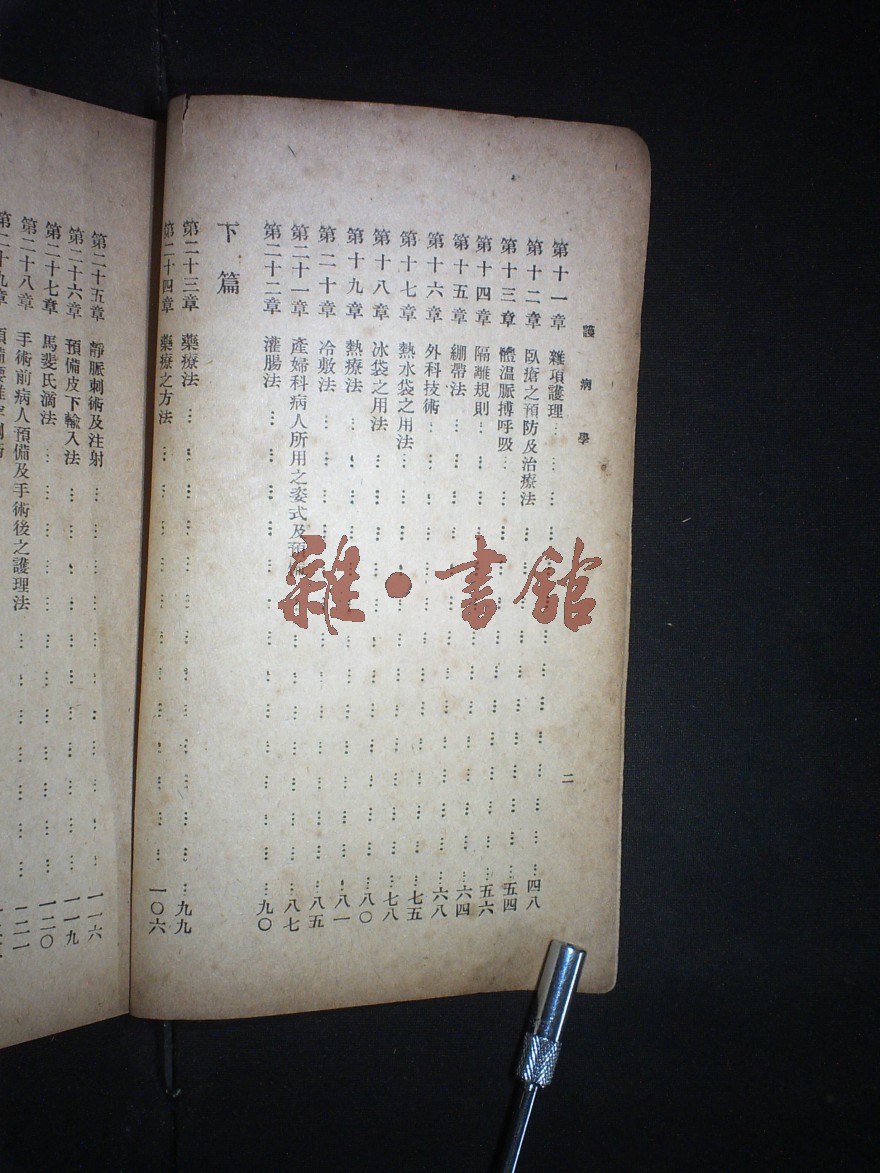 護病學
二
第十一章 雜項護理 … 四八
第十二章 臥瘡之預防及治療法 … 五四
第十三章 體溫脈搏呼吸 … 五六
第十四章 隔離規則 … 六四
第十五章 綳帶法 … 六八
第十六章 外科技術 … 七五
第十七章 熱水袋之用法 … 七八
第十八章 冰袋之用法 … 八〇
第十九章 熱療法 … 八一
第二十章 冷敷法 … 八五
第二十一章 產婦科病人所用之姿式及預 … 八七
第二十二章 灌腸法 … 九〇
下篇
第二十三章 藥療法 … 九九
第二十四章 藥療之方法 … 一〇六
第二十五章 靜脈刺術及注射 … 一一六
第二十六章 預備皮下輸入法 … 一一九
第二十七章 馬斐氏滴法 … 一二〇
第二十八章 手術前病人預備及手術後之護理法 … 一二一
第二十九章
雜·書館